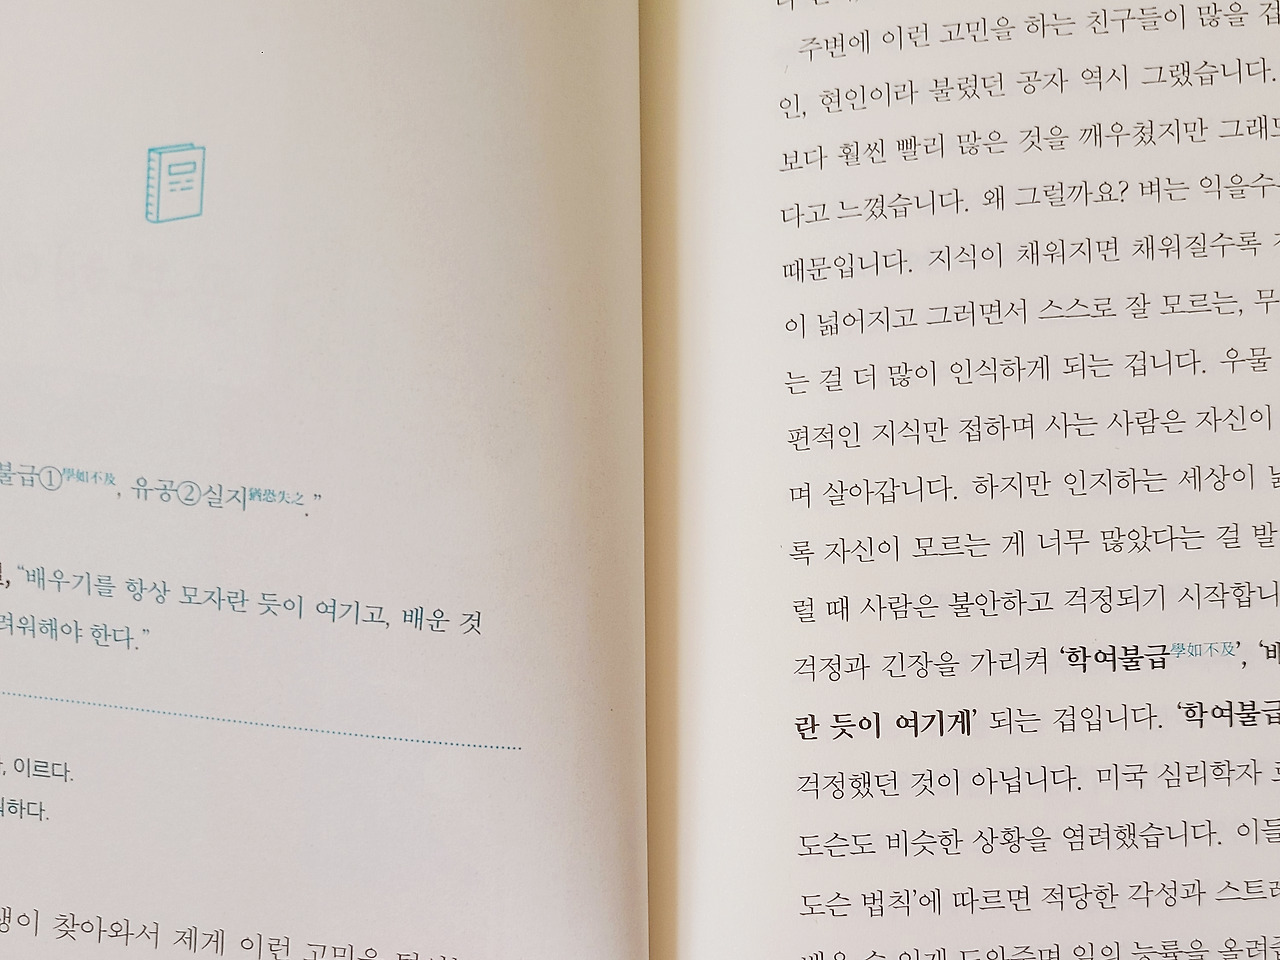 불급①學如不及, 유공②실지猶恐失之.”
“배우기를 항상 모자란 듯이 여기고, 배운 것
려워해야 한다.”
이르다.
하다.
생이 찾아와서 제게 이런 고민을
주변에 이런 고민을 하는 친구들이 많을 겁
인, 현인이라 불렸던 공자 역시 그랬습니다.
보다 훨씬 빨리 많은 것을 깨우쳤지만 그래도
다고 느꼈습니다. 왜 그럴까요? 벼는 익을수
때문입니다. 지식이 채워지면 채워질수록
이 넓어지고 그러면서 스스로 잘 모르는, 무
는 걸 더 많이 인식하게 되는 겁니다. 우물
편적인 지식만 접하며 사는 사람은 자신이
며 살아갑니다. 하지만 인지하는 세상이
록 자신이 모르는 게 너무 많았다는 걸 발
럴 때 사람은 불안하고 걱정되기 시작합니
걱정과 긴장을 가리켜 ‘학여불급學如不及’, ‘배
란 듯이 여기게’ 되는 겁입니다. ‘학여불급
걱정했던 것이 아닙니다. 미국 심리학자
도슨도 비슷한 상황을 염려했습니다. 이들
도슨 법칙’에 따르면 적당한 각성과 스트레
배울 수 있게 도와주며 일의 능률을 올려준